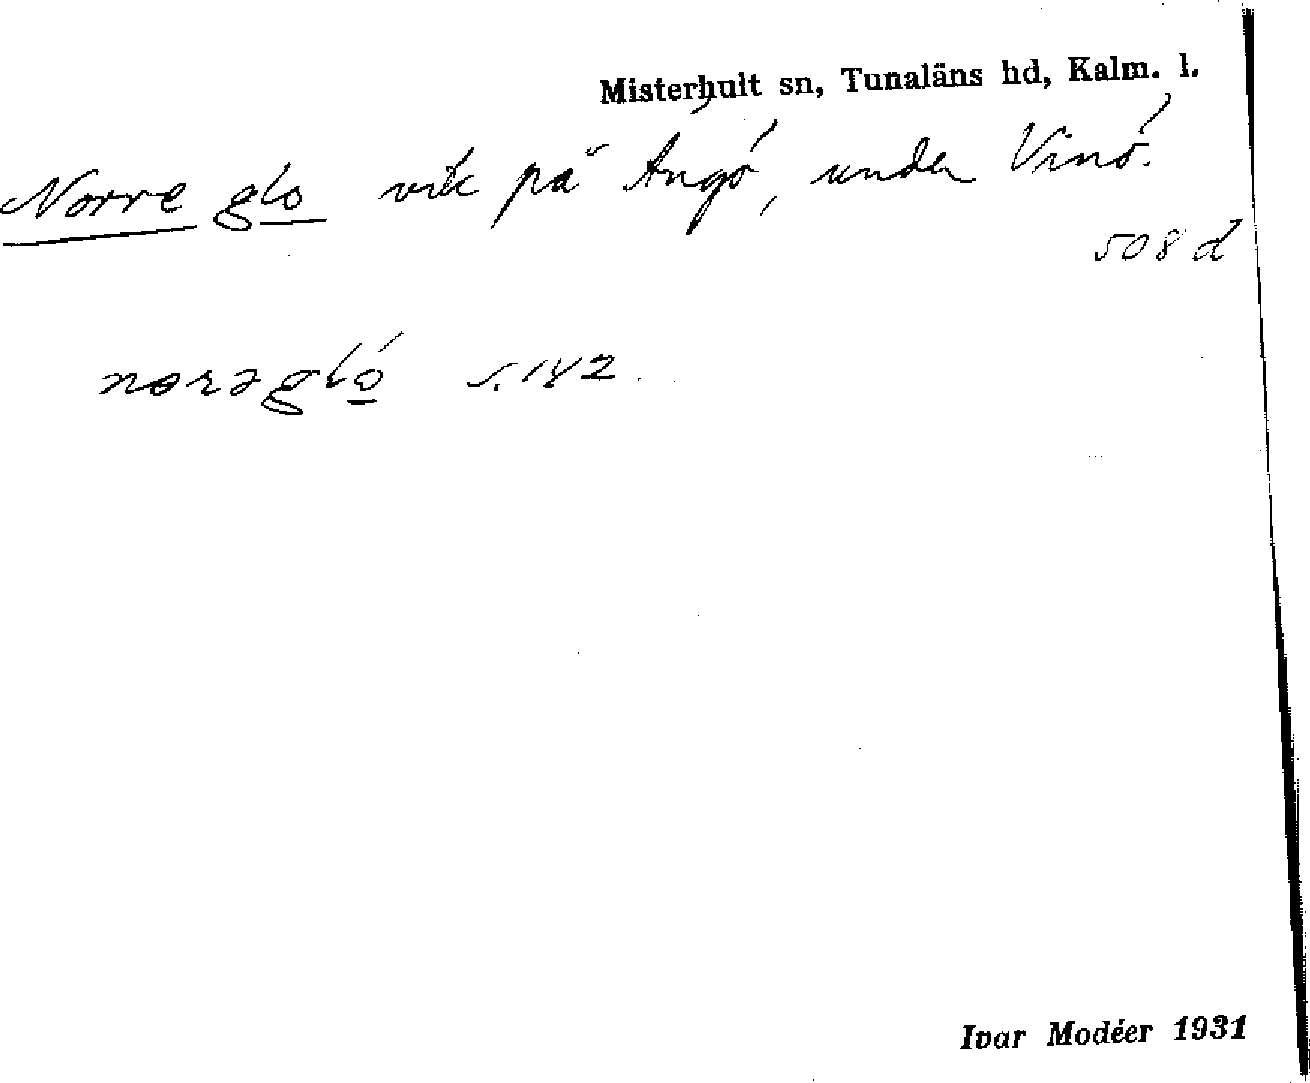 Misterhult sn, Tunaläns hd, Kalm. l.
Norre glo vik på Ängö, under Vinö.
508 d
nørəgló s. 142.
Ivar Modéer 1931